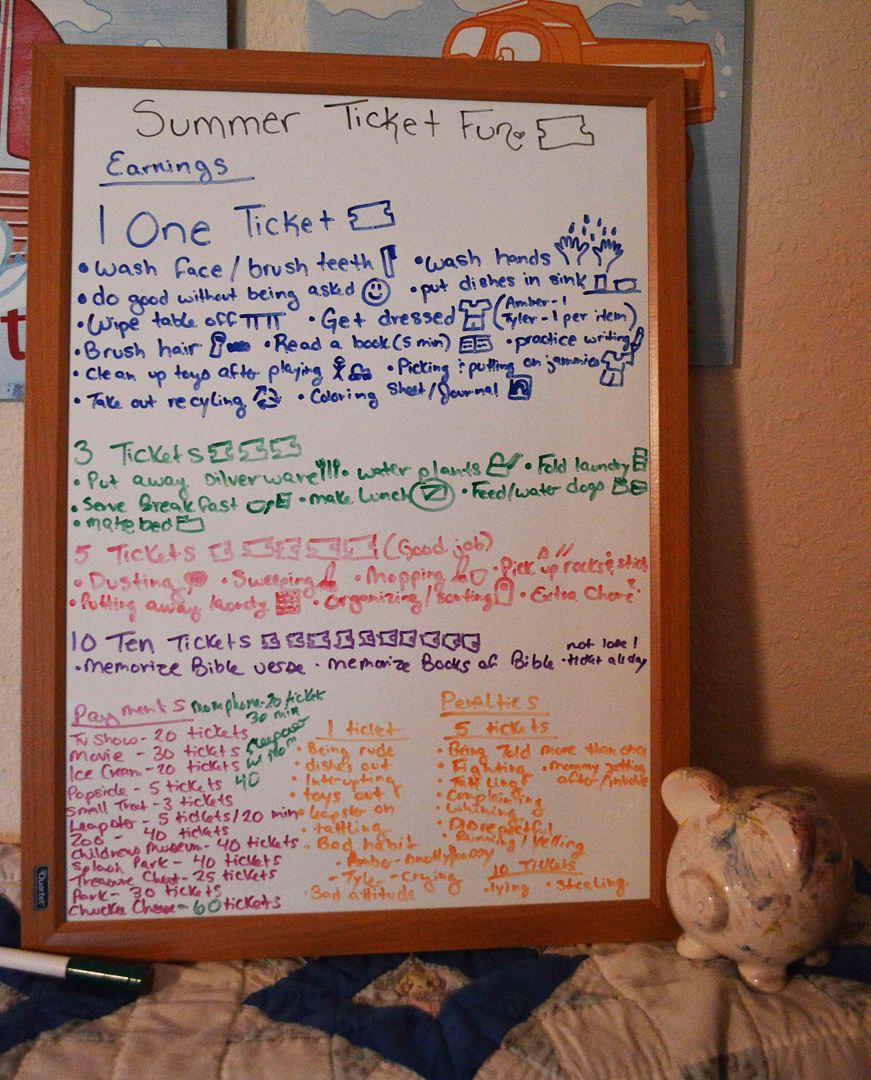 Summer Ticket Fun
Earnings
1 One Ticket
• wash face / brush teeth • wash hands
• do good without being asked • put dishes in sink
• Wipe table off • Get dressed (Amber - 1
Tyler - 1 per item)
• Brush hair • Read a book (5 min) • practice writing
• clean up toys after playing • Picking & putting on jammies
• Take out recyling • Coloring Sheet / Journal
3 Tickets
• Put away silverware • water plants • Fold laundry
• Serve Breakfast • make Lunch • Feed/water dogs
• make bed
5 Tickets (Good job)
• Dusting • Sweeping • Mopping • Pick up rocks & sticks
• Putting away laundry • organizing / sorting • Extra Chore
10 Ten Tickets
• Memorize Bible verse • memorize Books of Bible • not lose 1
ticket all day
Payments
mom phone - 20 ticket
30 min
TV Show - 20 tickets
Movie - 30 tickets
Sleepover
w/ mom
40
Ice Cream - 20 tickets
Popsicle - 5 tickets
Small Treat - 3 tickets
Leapster - 5 tickets/20 min
Zoo - 40 tickets
childrens museum - 40 tickets
Splash Park - 40 tickets
Treasure Chest - 25 tickets
Park - 30 tickets
Chucke Cheese - 60 tickets
Penalties
1 ticket
• Being rude
• dishes out
• Interupting
• toys out
• leapster on
• tattling
• Bad habit
• Amber -
• Tyler - crying
• Bad attitude
5 tickets
• Being Told more than once
• Fighting • mommy getting
after/involved
• Complaining
• whining
• Disrepectful
• Running / Yelling
10 Tickets
• lying • stealing
Quartet
t